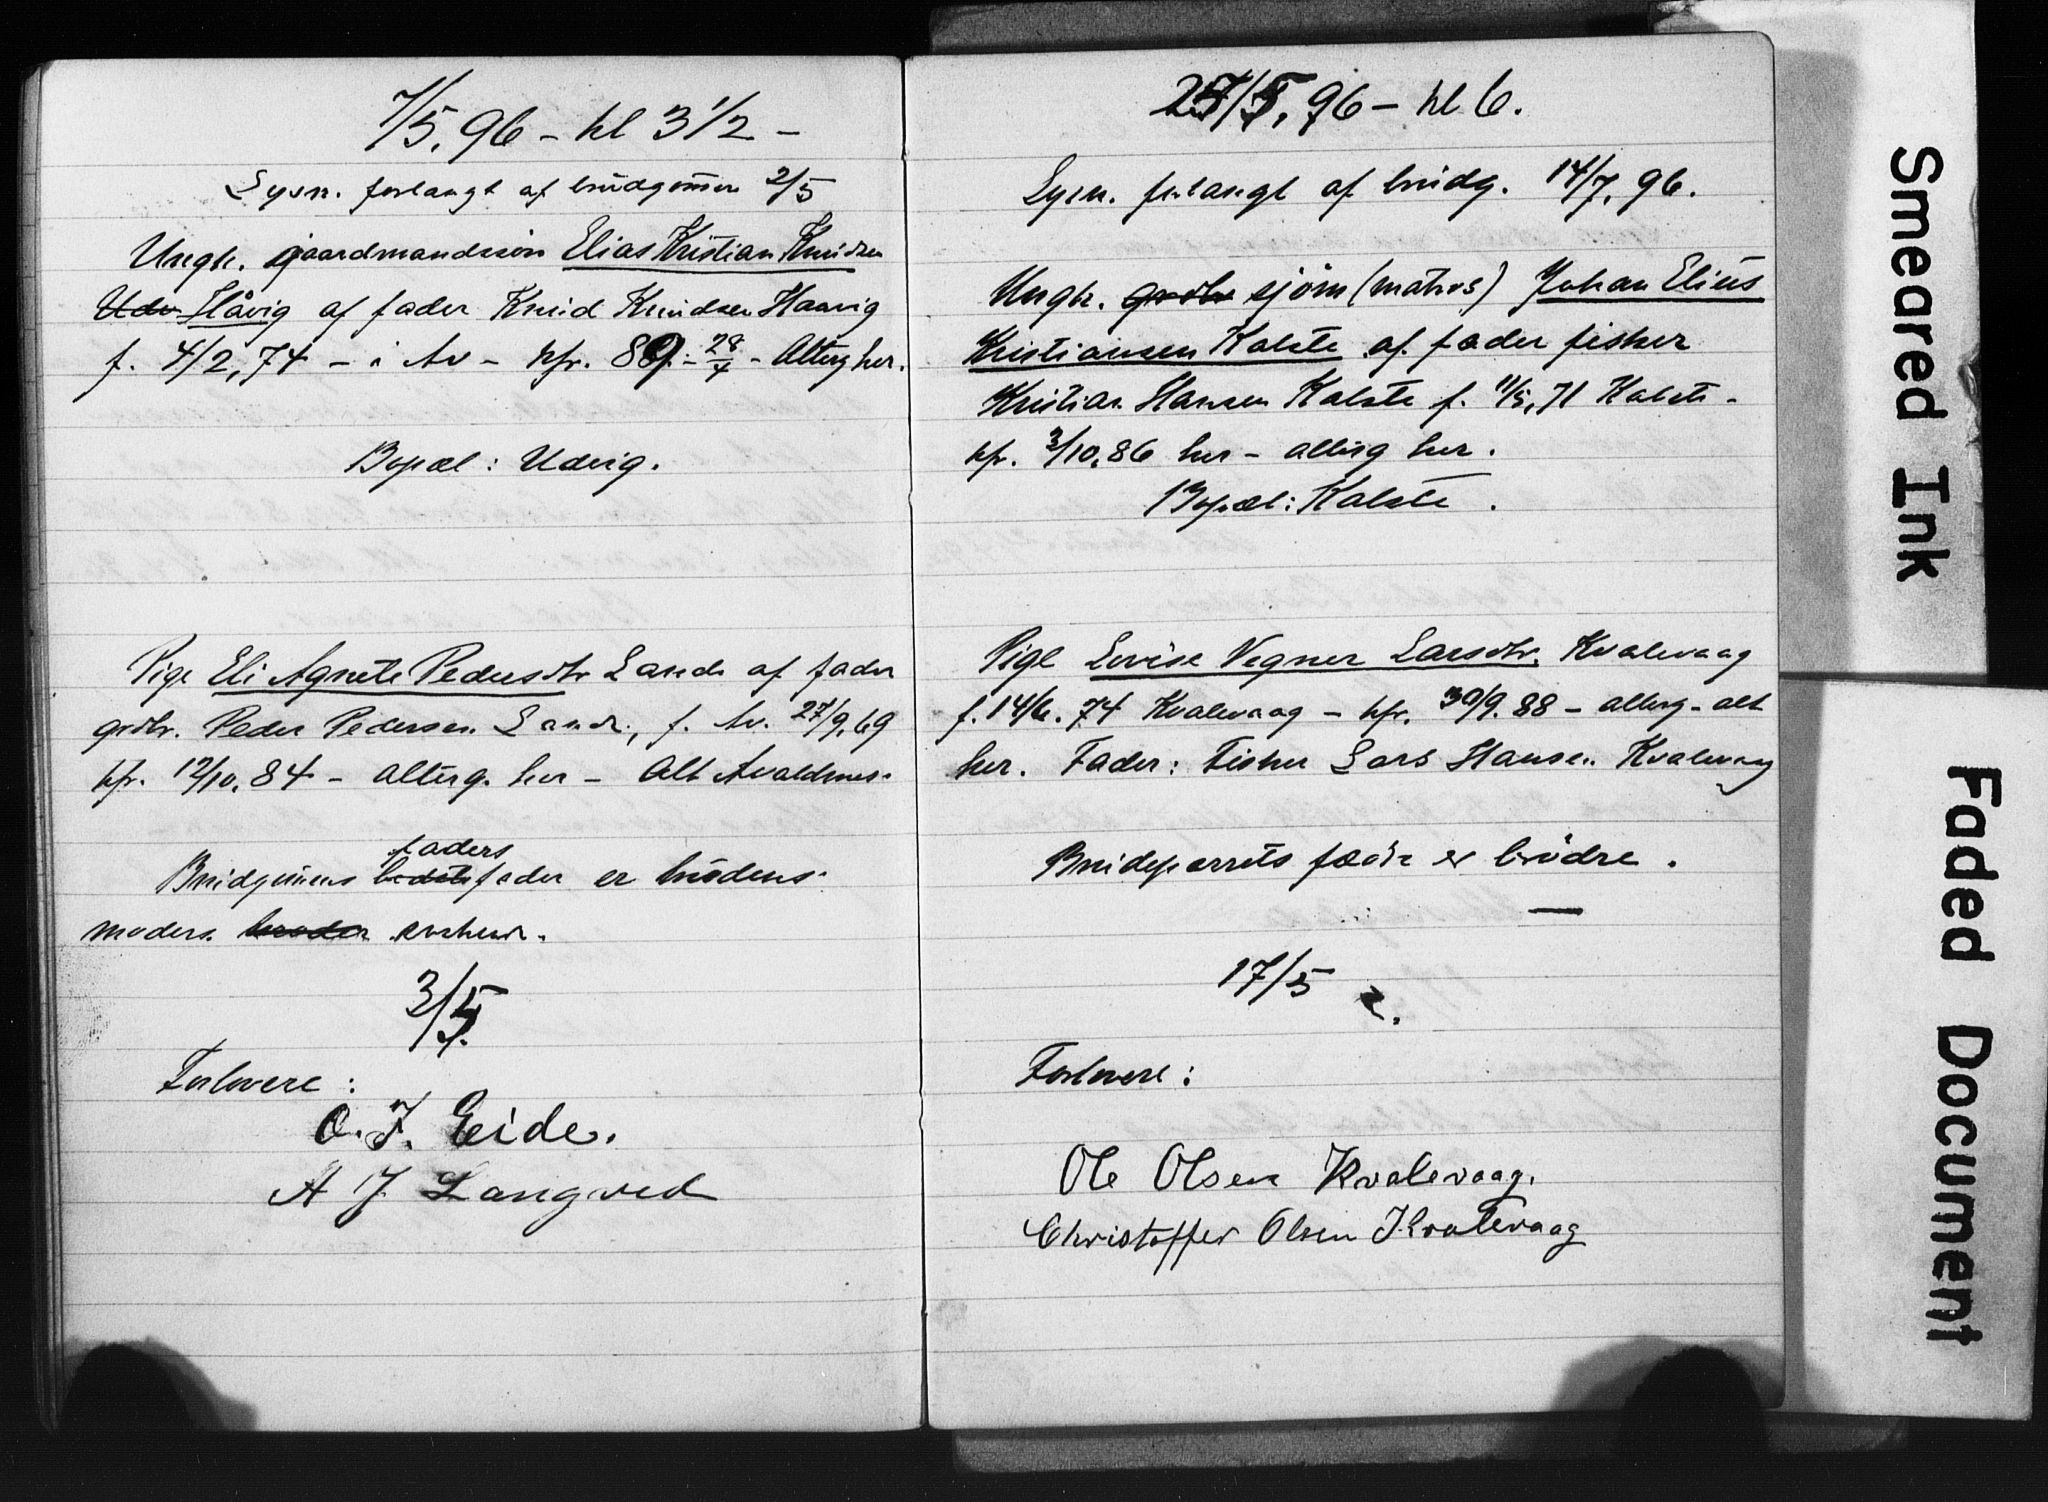 7/5.96 – kl 3 1/2 –
Lysn. forlangt af brudgommen 2/5
Ungk. gaardmandssön Elias Kristian Knudsen
Udv Håvig af fader Knud Knudsen Haavig
f. 4/2,74 – i Av – kfr. 89 – 28/4 – Alterg her.
Bopæl: Udvig.
Pige Eli Agnete Pedersdtr Sande af fader
grdbr. Peder Pedersen Sande, f. Av. 27/9.69
kfr. 12/10.84 – alterg. her – Alt Avaldsnes.
faders
Brudgomens fader er brudens
moders broder
3/5.
Forlovere:
O. J. Eide.
A J Langved
25/7.96 – kl 6.
Lysn. forlangt af brudg. 14/7.96.
Ungk. grdbr sjöm (matros) Johan Elius
Kristiansen Kalstø af fader fisker
Kristian Hansen Kalstø f. 11/5,71 Kalstø –
kfr. 3/10.86 her – alterg her.
Bopæl: Kalstø.
Pige Lovise Vegner Larsdtr. Kvalevaag
f. 14/6.74 Kvalevaag – kfr. 30/9.88 – alterg – alt
her. Fader: Fisker Lars Hansen Kvalevaag
Brudeparrets fædre er brödre.
—
17/5
Forlovere:
Ole Olsen Kvalevaag.
Christoffer Olsen Kvalevaag
Smeared Ink
Faded Document